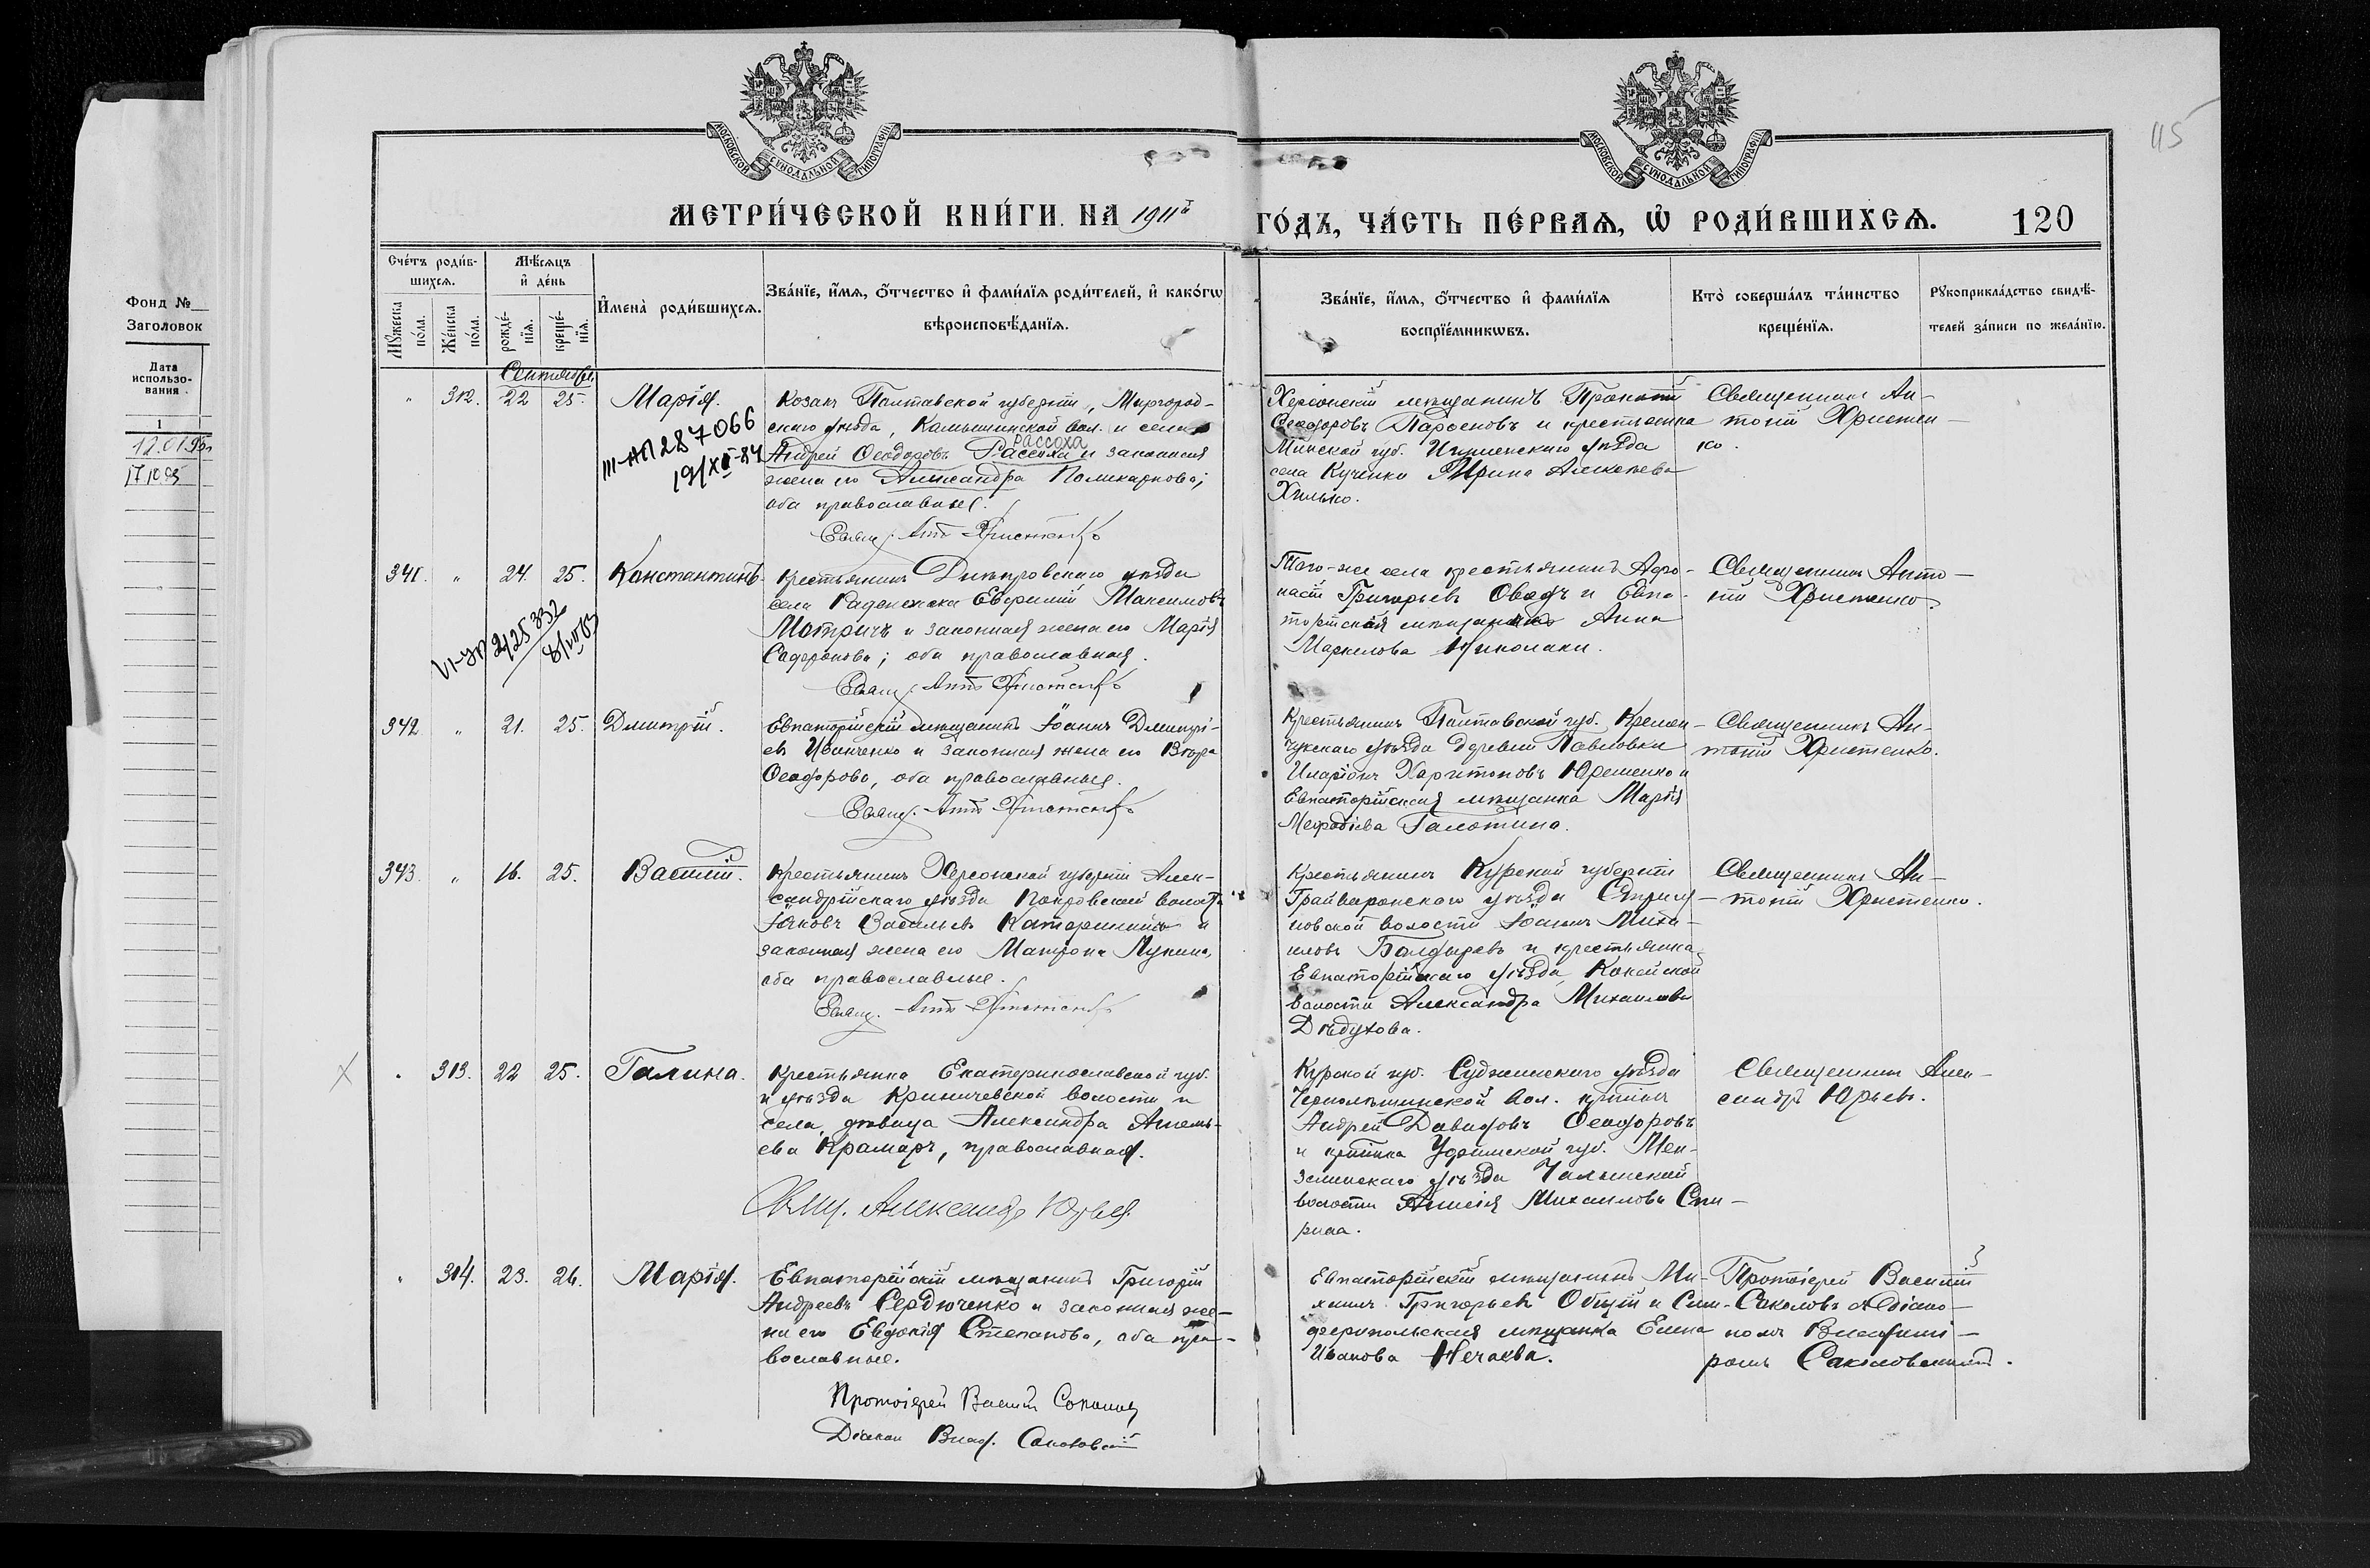 115
МОСКОВСКОЙ СѴНОДАЛЬНОЙ ТИПОГРАФІИ
МОСКОВСКОЙ СѴНОДАЛЬНОЙ ТИПОГРАФІИ
МЕТРИ́ЧЕСКОЙ КНИ́ГИ НА 1911й ГО́ДЪ, ЧА́СТЬ ПЕ́РВАЯ, Ѡ҆ РОДИ́ВШИХСЯ. 120
Фонд №
Заголовок
Дата
использо-
вания
1
12.01.95
Сче́тъ роди́в-
шихся.
Мꙋжеска по́ла.
Же́нска по́ла.
Мѣ́сяцъ
и҆ де́нь
рожде́-нїя.
креще́-нїя.
И҆мена̀ роди́вшихся.
Зва́нїе, и҆́мя, ѻ҆́тчество и҆ фами́лїя роди́телей, и҆ како́гѡ
вѣроисповѣ́данїя.
Зва́нїе, и҆́мя, ѻ҆́тчество и҆ фами́лїя
воспрїе́мникѡвъ.
Кто̀ соверша́лъ та́инство
креще́нїя.
Рꙋкоприкла́дство свидѣ́-
телей за́писи по жела́нїю.
Сентябрь
" 312. 22 25. Марія.
III-АП 287066
19/XII-84
Козакъ Полтавской губерніи, Миргород-
скаго уѣзда, Камышинской вол. и села
Рассоха
Андрей Ѳеодоровъ Рассоха и законная
жена его Александра Поликарпова;
оба православные.
Свящ. Ант. Христенко
Херсонскій мѣщанинъ Прокопій
Ѳеодоровъ Парѳеновъ и крестьянка
Минской губ. Игуменскаго уѣзда
села Кученки Ирина Алексѣева
Хилько.
Священникъ Ан-
тоній Христен-
ко.
341. " 24. 25. Константинъ.
VI-УР 2125332
8/VI 83
Крестьянинъ Днѣпровскаго уѣзда
села Раденска Евфимій Максимовъ
Мотричъ и законная жена его Марія
Сафронова; оба православные.
Свящ. Ант. Христенко
Того-же села крестьянинъ Аѳа-
насій Григорьевъ Овадъ и Евпа-
торійская мѣщанка Анна
Маркелова Николаки.
Священникъ Анто-
ній Христенко.
342 " 21. 25. Димитрій.
Евпаторійскій мѣщанинъ Іоаннъ Димитрі-
евъ Иваненко и законная жена его Вѣра
Ѳеодорова, оба православные.
Свящ. Ант. Христенко
Крестьянинъ Полтавской губ. Кремен-
чукскаго уѣзда деревни Павловки
Иларіонъ Харитоновъ Юременко и
Евпаторійская мѣщанка Марія
Меѳодіева Галотина.
Священникъ Ан-
тоній Христенко.
343. " 16. 25. Василій.
Крестьянинъ Херсонской губерніи Алек-
сандрійскаго уѣзда Покровской волости
Іаковъ Васильевъ Катеринич и
законная жена его Матрона Лукина,
оба православные.
Свящ. Ант. Христенко
Крестьянинъ Курской губерніи
Грайворонскаго уѣзда Стригу-
новской волости Іоаннъ Миха-
иловъ Болдыревъ и крестьянка
Евпаторійскаго уѣзда Кокейской
волости Александра Михаилова
Дѣдухова.
Священникъ Ан-
тоній Христенко.
" 313. 22 25. Галина.
Крестьянка Екатеринославской губ.
и уѣзда Криничевской волости и
села, дѣвица Александра Амель-
ева Крамаръ, православная.
Свящ. Александръ Юрьев.
Курской губ. Суджинскаго уѣзда
Чернолѣшинской вол. кр-нинъ
Андрей Давидовъ Ѳеодоровъ
и кр-нка Уфимской губ. Мен-
зелинскаго уѣзда
волости Михаилова Спи-
рина.
Священникъ Алек-
сандръ Юрьевъ.
" 314. 23. 26. Марія.
Евпаторійскій мѣщанинъ Григорій
Андреевъ Сердюченко и законная же-
на его Евдокія Степанова, оба пра-
вославные.
Протоіерей Василій Соколовъ
Діаконъ Влад. Саколовскій
Евпаторійскій мѣщанинъ Ми-
хаилъ Григорьевъ Общій и Сим-
феропольская мѣщанка Елена
Иванова Нечаева.
Протоіерей Василій
Соколовъ съ діако-
номъ Владимі-
ромъ Саколовскимъ.